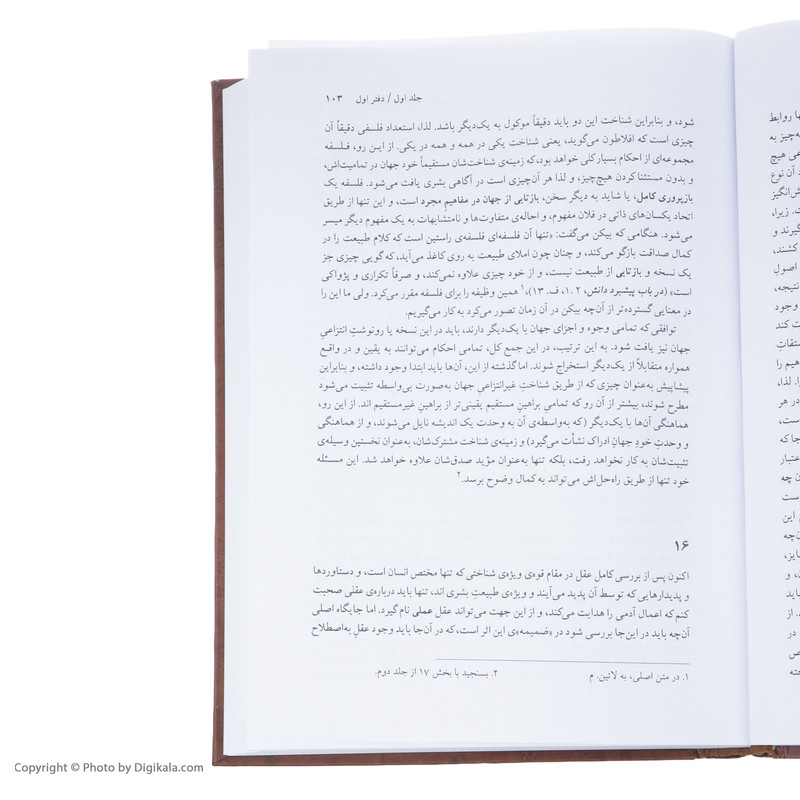 جلد اول / دفتر اول ۱۰۳
شود، و بنابراین شناخت این دو باید دقیقاً موکول به یک‌دیگر باشد. لذا، استعداد فلسفی دقیقاً آن
چیزی است که افلاطون می‌گوید، یعنی شناخت یکی در همه و همه در یکی. از این رو، فلسفه
مجموعه‌ای از احکام بسیار کلی خواهد بود، که زمینه‌ی شناخت‌شان مستقیماً خود جهان در تمامیت‌اش،
و بدون مستثنا کردن هیچ‌چیز، و لذا هر آن‌چیزی است در آگاهی بشری یافت می‌شود. فلسفه یک
بازپروری کامل، یا شاید به دیگر سخن، بازتابی از جهان در مفاهیمِ مجرد است، و این تنها از طریق
اتحاد یکسان‌های ذاتی در فلان مفهوم، و احاله‌ی متفاوت‌ها و نامتشابهات به یک مفهوم دیگر میسر
می‌شود. هنگامی که بیکن می‌گفت: «تنها آن فلسفه‌ای فلسفه‌ی راستین است که کلام طبیعت را در
کمال صداقت بازگو می‌کند، و چنان چون املای طبیعت به روی کاغذ می‌آید، که گویی چیزی جز
یک نسخه و بازتابی از طبیعت نیست، و از خود چیزی علاوه نمی‌کند، و صرفاً تکراری و پژواکی
است» (در باب پیشبرد دانش، ۲.۱، ف. ۱۳)،۱ همین وظیفه را برای فلسفه مقرر می‌کرد. ولی ما این را
در معنایی گسترده‌تر از آن‌چه بیکن در آن زمان تصور می‌کرد به کار می‌گیریم.
توافقی که تمامی وجوه و اجزای جهان با یک‌دیگر دارند، باید در این نسخه یا رونوشتِ انتزاعیِ
جهان نیز یافت شود. به این ترتیب، در این جمع کل، تمامی احکام می‌توانند به یقین و در واقع
همواره متقابلاً از یک‌دیگر استخراج شوند. اما گذشته از این، آن‌ها باید ابتدا وجود داشته، و بنابراین
پیشاپیش به‌عنوان چیزی که از طریق شناختِ غیرانتزاعیِ جهان به‌صورت بی‌واسطه تثبیت می‌شود
مطرح شوند، بیشتر از آن رو که تمامیِ براهینِ مستقیم یقینی‌تر از براهینِ غیرمستقیم اند. از این رو،
هماهنگی آن‌ها با یک‌دیگر (که به‌واسطه‌ی آن به وحدت یک اندیشه نایل می‌شوند، و از هماهنگی
و وحدتِ خودِ جهانِ ادراک نشأت می‌گیرد) و زمینه‌ی شناخت مشترک‌شان، به‌عنوان نخستین وسیله‌ی
تثبیت‌شان به کار نخواهد رفت، بلکه تنها به‌عنوان مؤید صدق‌شان علاوه خواهد شد. این مسئله
خود تنها از طریق راه‌حل‌اش می‌تواند به کمال وضوح برسد.۲
۱۶
اکنون پس از بررسی کامل عقل در مقام قوه‌ی ویژه‌ی شناختی که تنها مختص انسان است، و دستاوردها
و پدیدارهایی که توسط آن پدید می‌آیند و ویژه‌ی طبیعتِ بشری اند، تنها باید درباره‌ی عقلی صحبت
کنم که اعمال آدمی را هدایت می‌کند، و از این جهت می‌تواند عقل عملی نام گیرد. اما جایگاه اصلی
آن‌چه باید در این‌جا بررسی شود در «ضمیمه»ی این اثر است، که در آن‌جا باید وجود عقلِ به‌اصطلاح
۱. در متن اصلی، به لاتین. م ۲. بسنجید با بخش ۱۷ از جلد دوم.
Copyright © Photo by Digikala.com